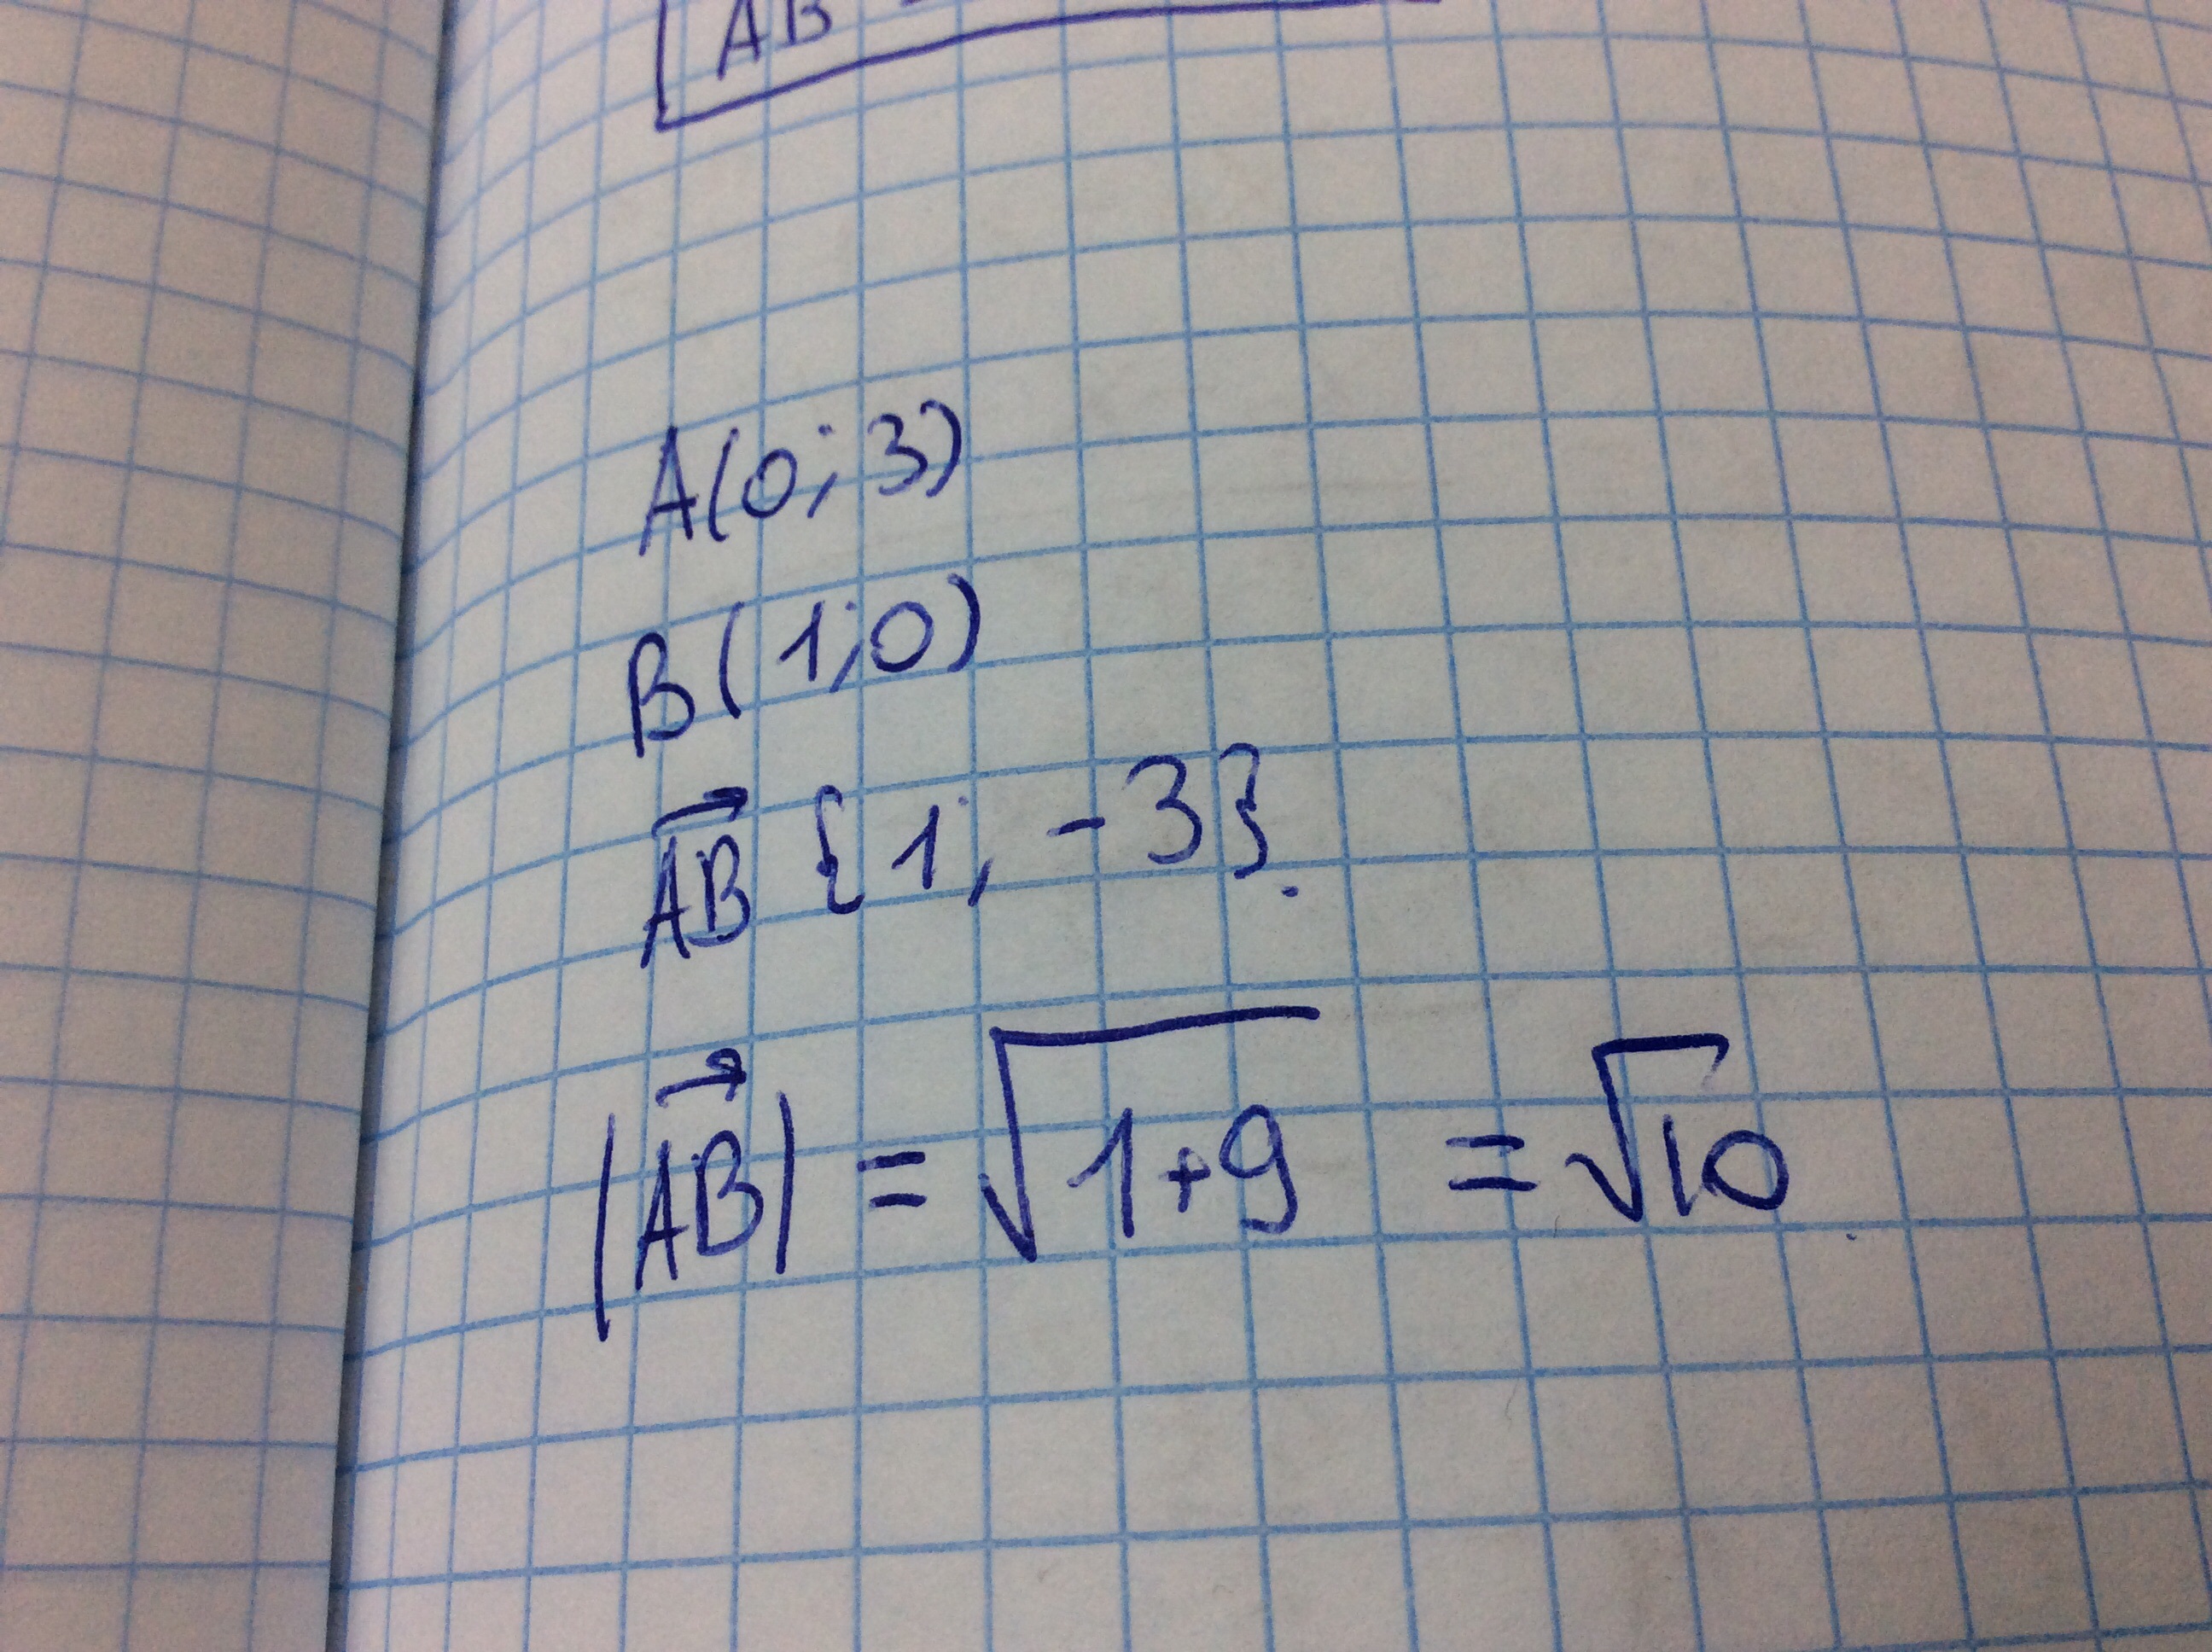 AB
A(0; 3)
B(1;0)
AB {1; -3}.
|AB| = √1+9 = √10